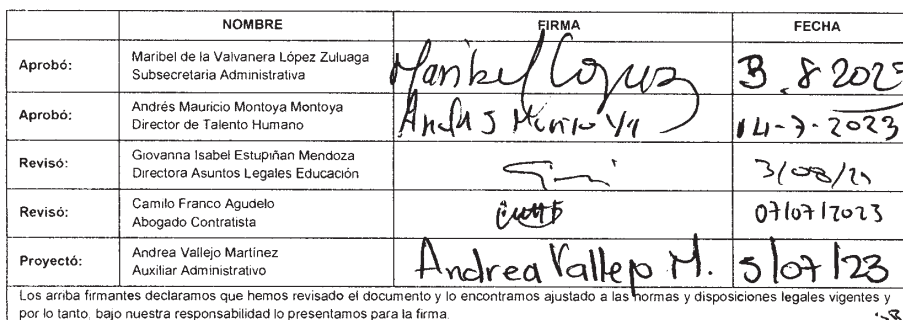 NOMBRE FIRMA FECHA
Aprobó: Maribel de la Valvanera López Zuluaga
Subsecretaria Administrativa
Maribel López 3.8 2023
Aprobó: Andrés Mauricio Montoya Montoya
Director de Talento Humano
14-7-2023
Revisó: Giovanna Isabel Estupiñan Mendoza
Directora Asuntos Legales Educación
3/08/
Revisó: Camilo Franco Agudelo
Abogado Contratista
07/07/2023
Proyectó: Andrea Vallejo Martínez
Auxiliar Administrativo
Andrea Vallejo M. 5/07/23
Los arriba firmantes declaramos que hemos revisado el documento y lo encontramos ajustado a las normas y disposiciones legales vigentes y
por lo tanto, bajo nuestra responsabilidad lo presentamos para la firma.